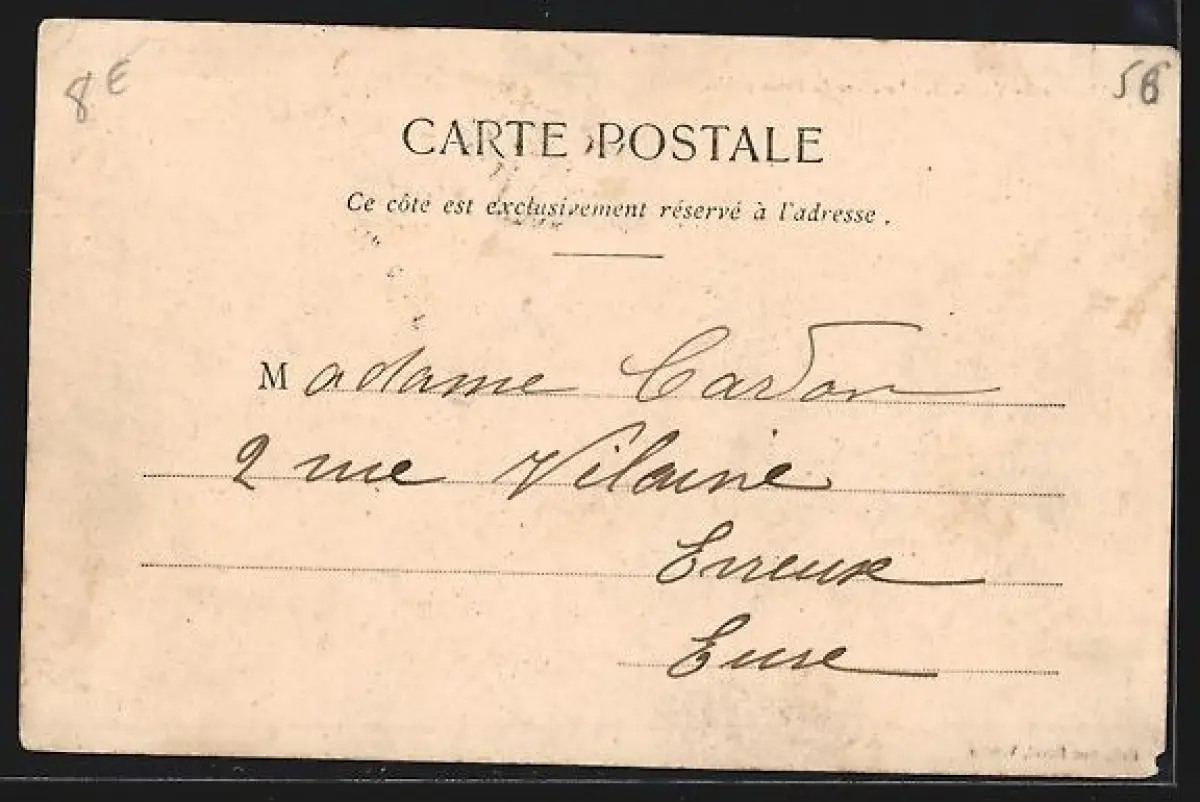 8€
56
CARTE POSTALE
Ce côté est exclusivement réservé à l'adresse.
Madame Cardon
2 rue Vilaine
Evreux
Eure